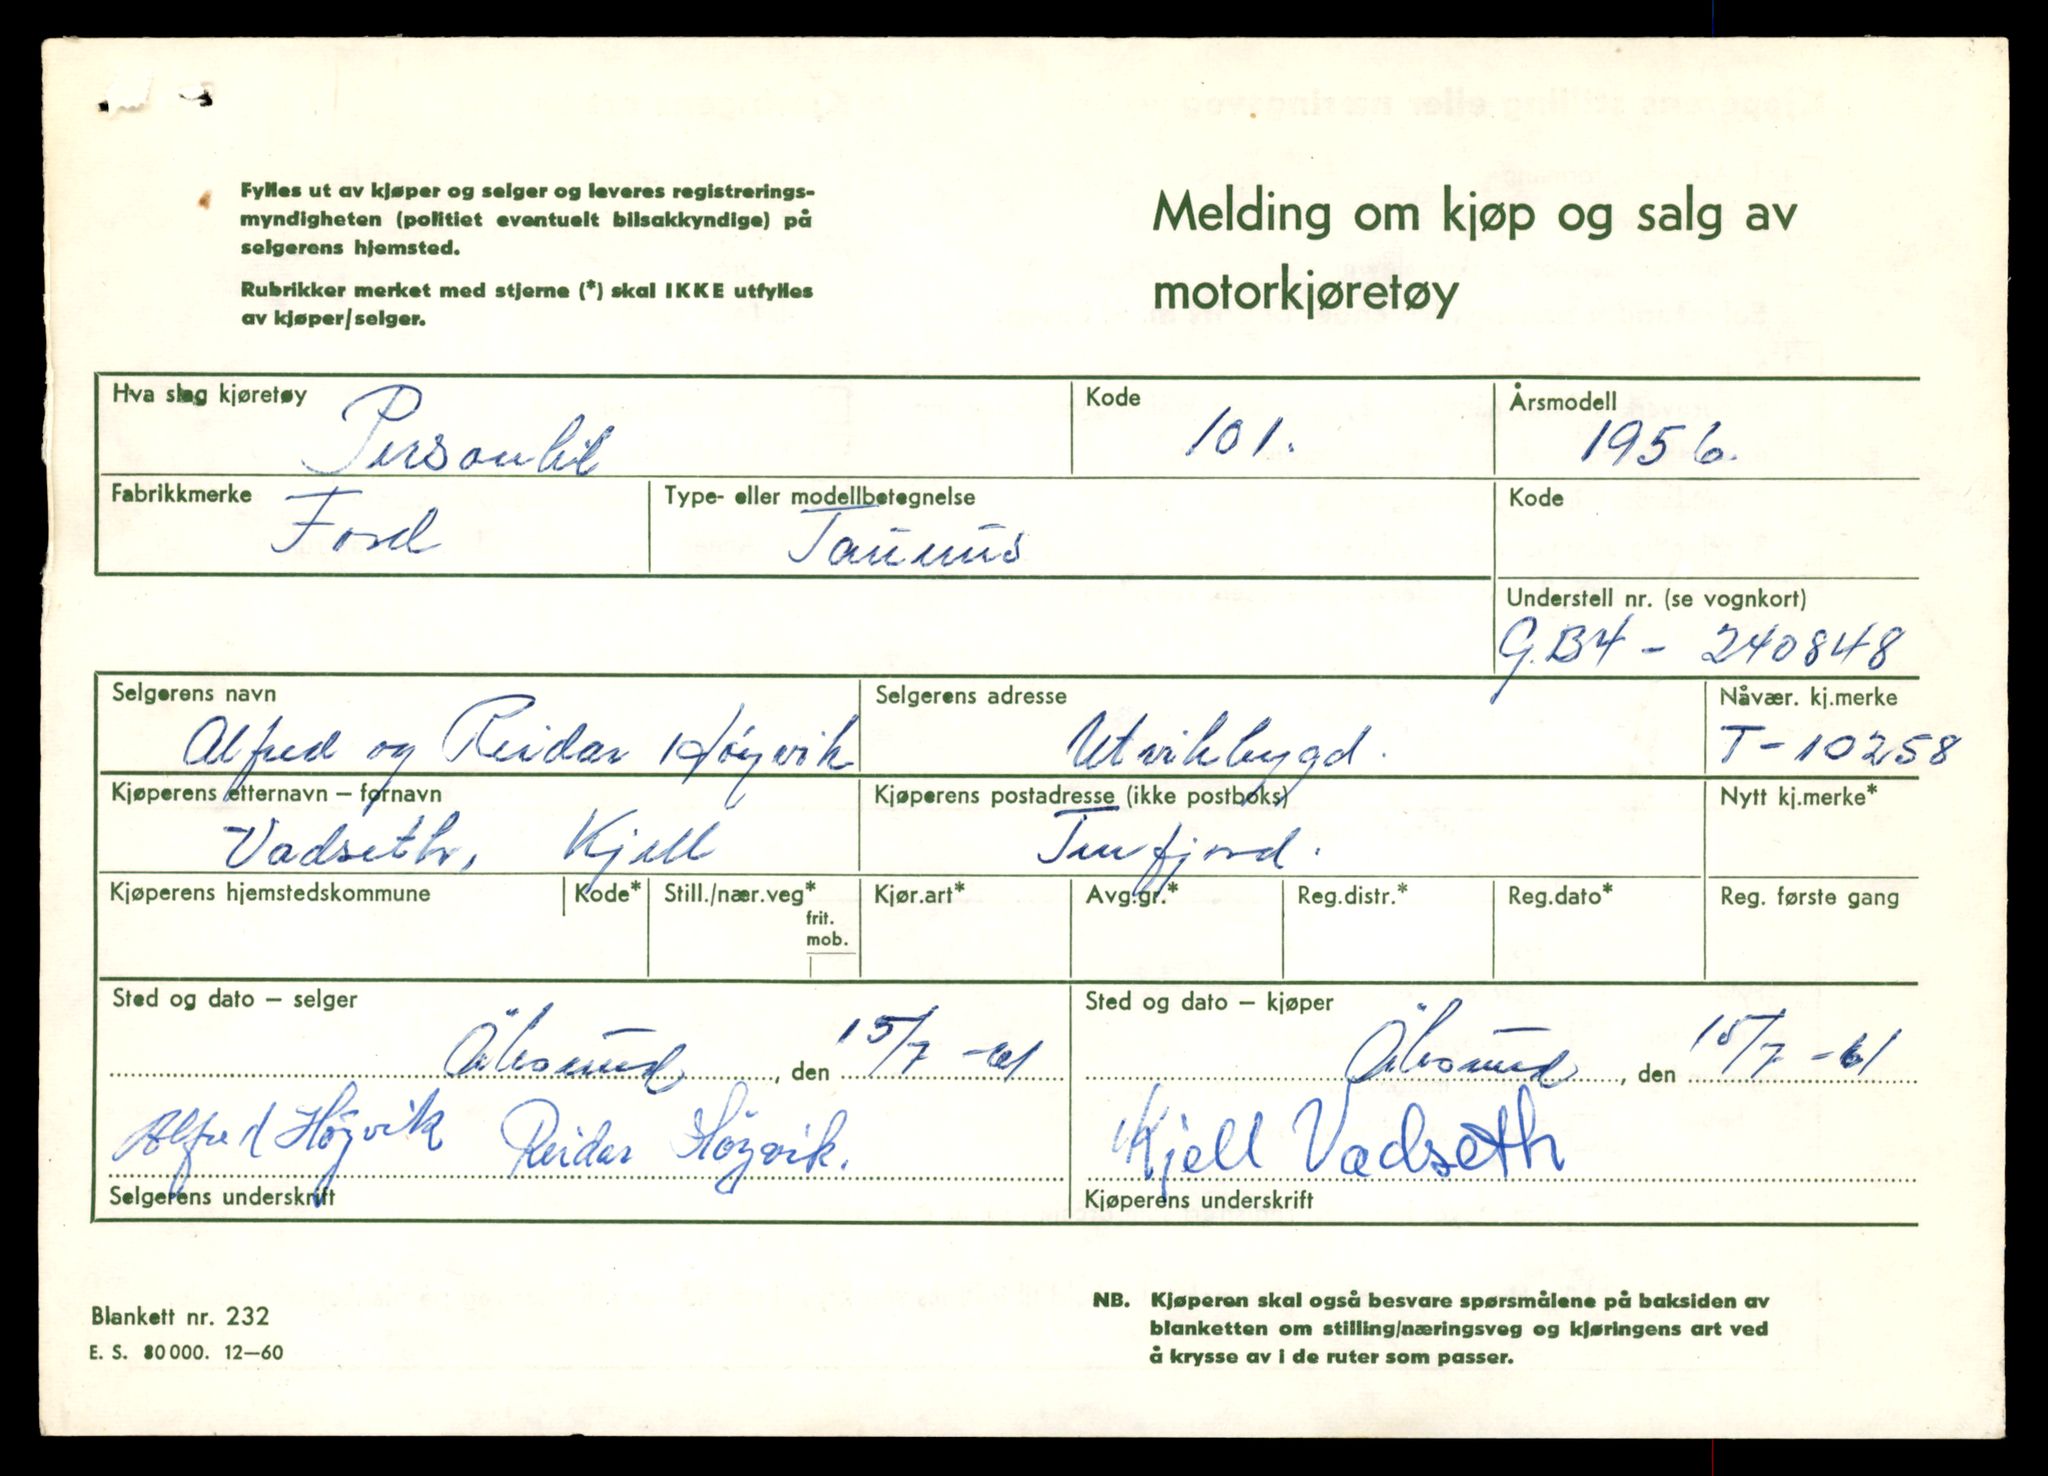 Fylles ut av kjøper og selger og leveres registrerings-
myndigheten (politiet eventuelt bilsakkyndige) på
selgerens hjemsted.
Rubrikker merket med stjerne (*) skal IKKE utfylles
av kjøper/selger.
Melding om kjøp og salg av
motorkjøretøy
Hva slag kjøretøy
Personbil
Kode
101.
Årsmodell
1956.
Fabrikkmerke
Ford
Type- eller modellbetegnelse
Taunus
Kode
Understell nr. (se vognkort)
G.B4 - 240848
Selgerens navn
Alfred og Reidar Høyvik
Selgerens adresse
Utvikbygd.
Nåvær. kj.merke
T-10258
Kjøperens etternavn – fornavn
Vadseth, Kjell
Kjøperens postadresse (ikke postboks)
Tufjord.
Nytt kj.merke*
Kjøperens hjemstedskommune
Kode*
Still./nær.veg*
frit.
mob.
Kjør.art*
Avg.gr.*
Reg.distr.*
Reg.dato*
Reg. første gang
Sted og dato – selger
Ålesund, den 15/7 -61
Alfred Høyvik Reidar Høyvik.
Selgerens underskrift
Sted og dato – kjøper
Ålesund, den 15/7 -61
Kjell Vadseth
Kjøperens underskrift
Blankett nr. 232
E. S. 80000. 12–60
NB. Kjøperen skal også besvare spørsmålene på baksiden av
blanketten om stilling/næringsveg og kjøringens art ved
å krysse av i de ruter som passer.